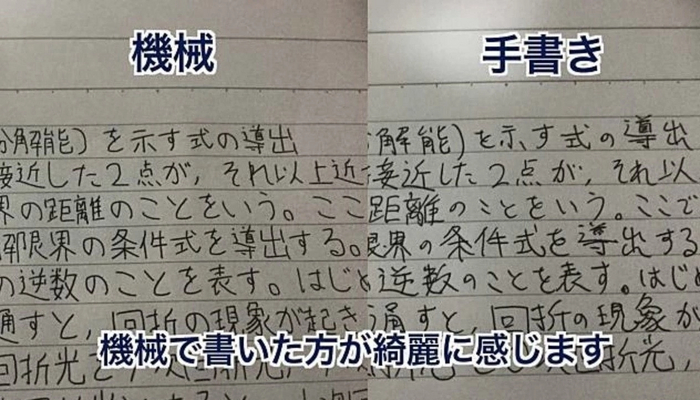 機械
手書き
分解能)を示す式の導出
接近した2点が,それ以上近
界の距離のことをいう。ここ
解限界の条件式を導出する。
の逆数のことを表す。はじめ
通すと,回折の現象が起き
回折光
解能)を示す式の導出
接近した2点が,それ以
距離のことをいう。ここで
限界の条件式を導出する
逆数のことを表す。はじ
通すと,回折の現象が
回折光,
機械で書いた方が綺麗に感じます